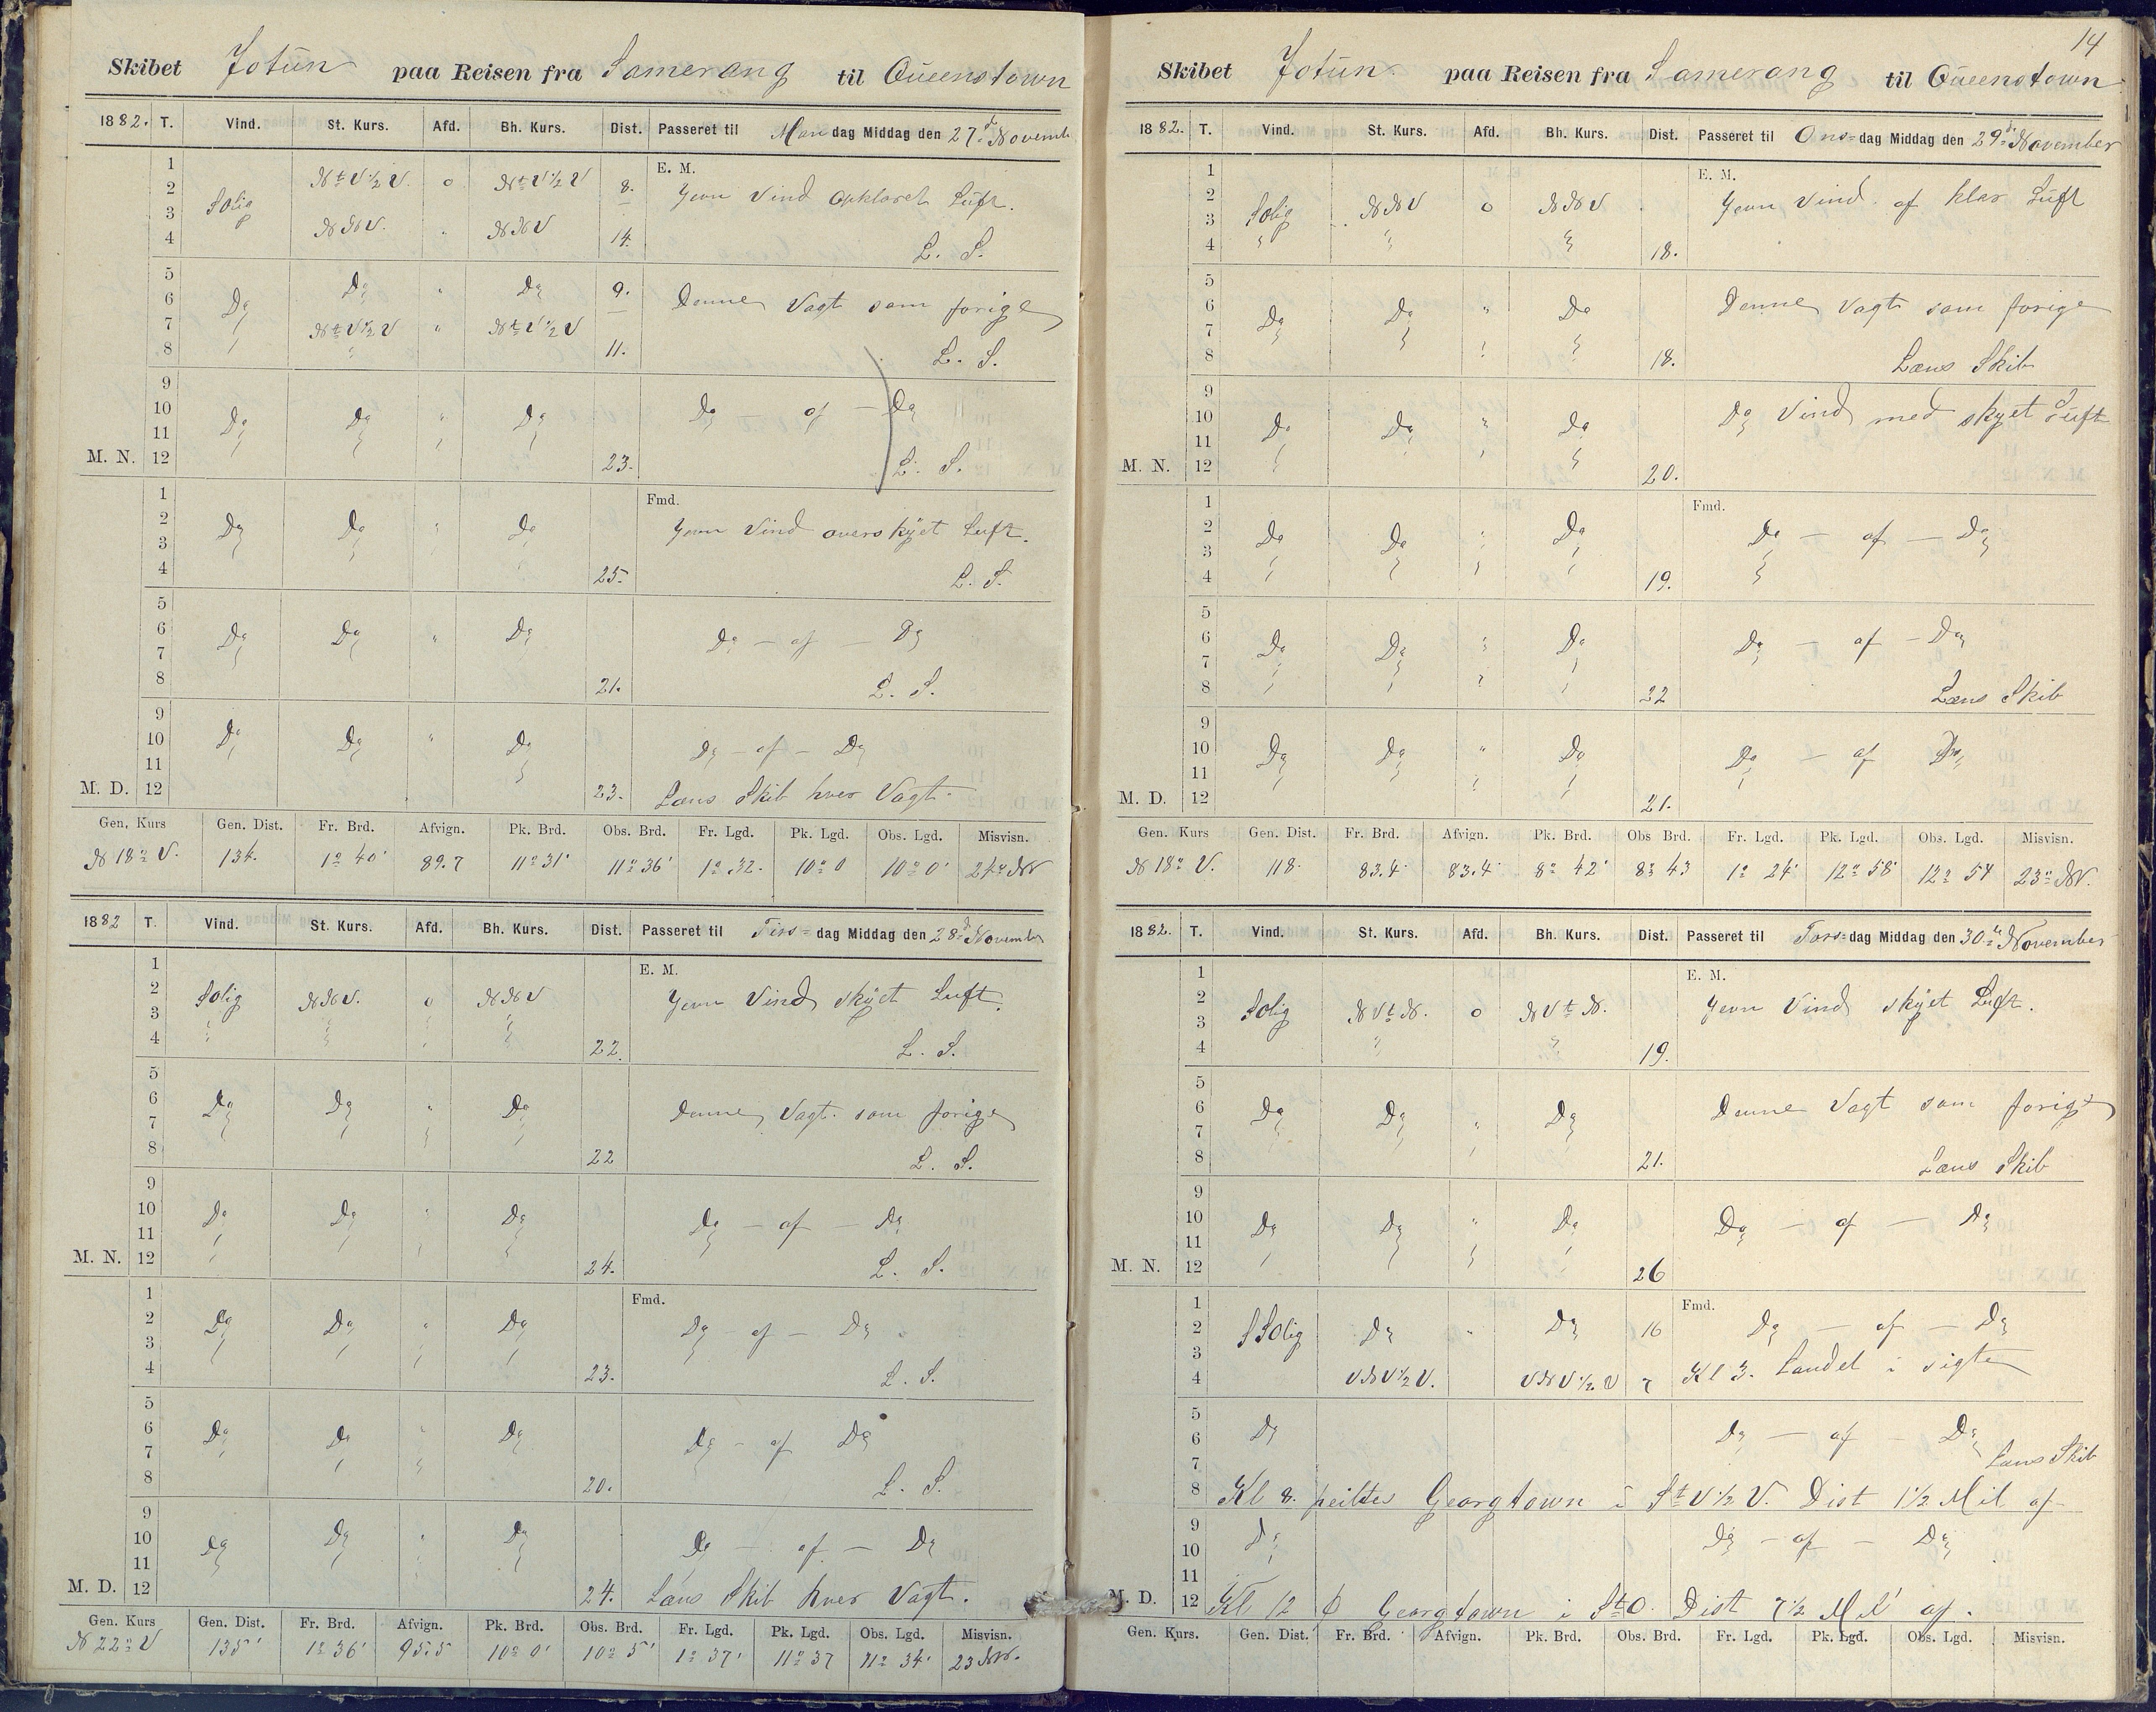 Skibet Jotun paa Reisen fra Samerang til Queenstown
1882. T. Vind. St. Kurs. Afd. Bh. Kurs. Dist. Passeret til Mandag Middag den 27de Novemb.
1 E. M.
2 Solig Nt V 1/2 V. 0 Nt V 1/2 V 8. Jevn Vind opklaret Luft.
3 NNV. " NNV
4 14. L. S.
5 Do " Do 9.
6 Do Denne Vagt som forige
7 Nt V 1/2 V " Nt V 1/2 V
8 11. L. S.
9
10 Do Do " Do Do — af — Do
11
M. N. 12 23. L. S.
1 Fmd.
2 Do Do " Do Jevn Vind overskyet Luft.
3
4 25. L. S.
5
6 Do Do " Do Do — af — Do
7
8 21. L. S.
9
10 Do Do " Do Do — af — Do
11
M. D. 12 23. Læns Skib hver Vagt.
Gen, Kurs Gen. Dist. Fr. Brd. Afvign. Pk. Brd. Obs. Brd. Fr. Lgd. Pk. Lgd. Obs. Lgd. Misvisn.
N 18° V. 134. 1° 40' 89.7 11° 31' 11° 36' 1° 32. 10° 0 10° 0' 24° NV
1882 T. Vind. St. Kurs. Afd. Bh. Kurs. Dist. Passeret til Tirs=dag Middag den 28de November
1 E. M.
2 Solig NNV. 0 NNV Jevn Vind skyet Luft.
3
4 22. L. S.
5
6 Do Do " Do Denne Vagt som forige
7
8 22 L. S.
9
10 Do Do " Do Do — af — Do
11
M. N. 12 24. L. S.
1 Fmd.
2 Do Do " Do Do — af — Do
3
4 23. L. S.
5
6 Do Do " Do Do — af Do
7
8 20. L. S.
9
10 Do Do " Do Do — af — Do
11
M. D. 12 24. Læns Skib hver Vagt.
Gen. Kurs Gen. Dist. Fr. Brd. Afvign. Pk. Brd. Obs. Brd. Fr. Lgd. Pk. Lgd. Obs. Lgd. Misvisn.
N 22° V 135' 1° 36' 95.5 10° 0' 10° 5' 1° 37' 11° 37 11° 34' 23 NV.
14
Skibet Jotun paa Reisen fra Samerang til Queenstown
1882. T. Vind. St. Kurs. Afd. Bh. Kurs. Dist. Passeret til Ons=dag Middag den 29de November
1 E. M.
2 Solig NNV 0 NNV Jevn Vind af klar Luft
3
4 18.
5
6 Do Do " Do Denne Vagt som forige
7
8 18. Læns Skib
9
10 Do Do " Do Do Vind med skyet Luft
11
M. N. 12 20.
1 Fmd.
2 Do Do " Do Do — af — Do
3
4 19.
5
6 Do Do " Do Do — af — Do
7
8 22 Læns Skib
9
10 Do Do " Do Do — af Do
11
M. D. 12 21.
Gen. Kurs Gen. Dist. Fr. Brd. Afvign. Pk. Brd. Obs Brd. Fr. Lgd. Pk. Lgd. Obs. Lgd. Misvisn.
N 18° V. 118. 83.4. 83.4 8° 42' 8° 43 1° 24' 12° 58' 12° 54 23° NV.
1882. T. Vind. St. Kurs. Afd. Bh. Kurs. Dist. Passeret til Tors=dag Middag den 30te November
1 E. M.
2 Solig NVtN. 0 NVtN. Jevn Vind skyet Luft.
3
4 19.
5
6 Do Do " Do Denne Vagt som forige
7
8 21. Læns Skib
9
10 Do Do " Do Do — af — Do
11
M. N. 12 26
1 Fmd.
2 SSolig Do " Do 16 Do — af — Do
3
4 VNV 1/2 V. VNV 1/2 V 7 Kl 3. Landet i sigte
5
6 Do Do — af — Do
7 Læns Skib
8 Kl 8. peiltes Georgtown i St V 1/2 V. Dist 1 1/2 Mil af
9
10 Do Do — af — Do
11
M. D. 12 Kl 12 p Georgtown i StO. Dist 7 1/2 Mil af.
Gen. Kurs. Gen. Dist. Fr. Brd. Afvign. Pk. Brd. Obs. Brd. Fr. Lgd. Pk. Lgd. Obs. Lgd. Misvisn.